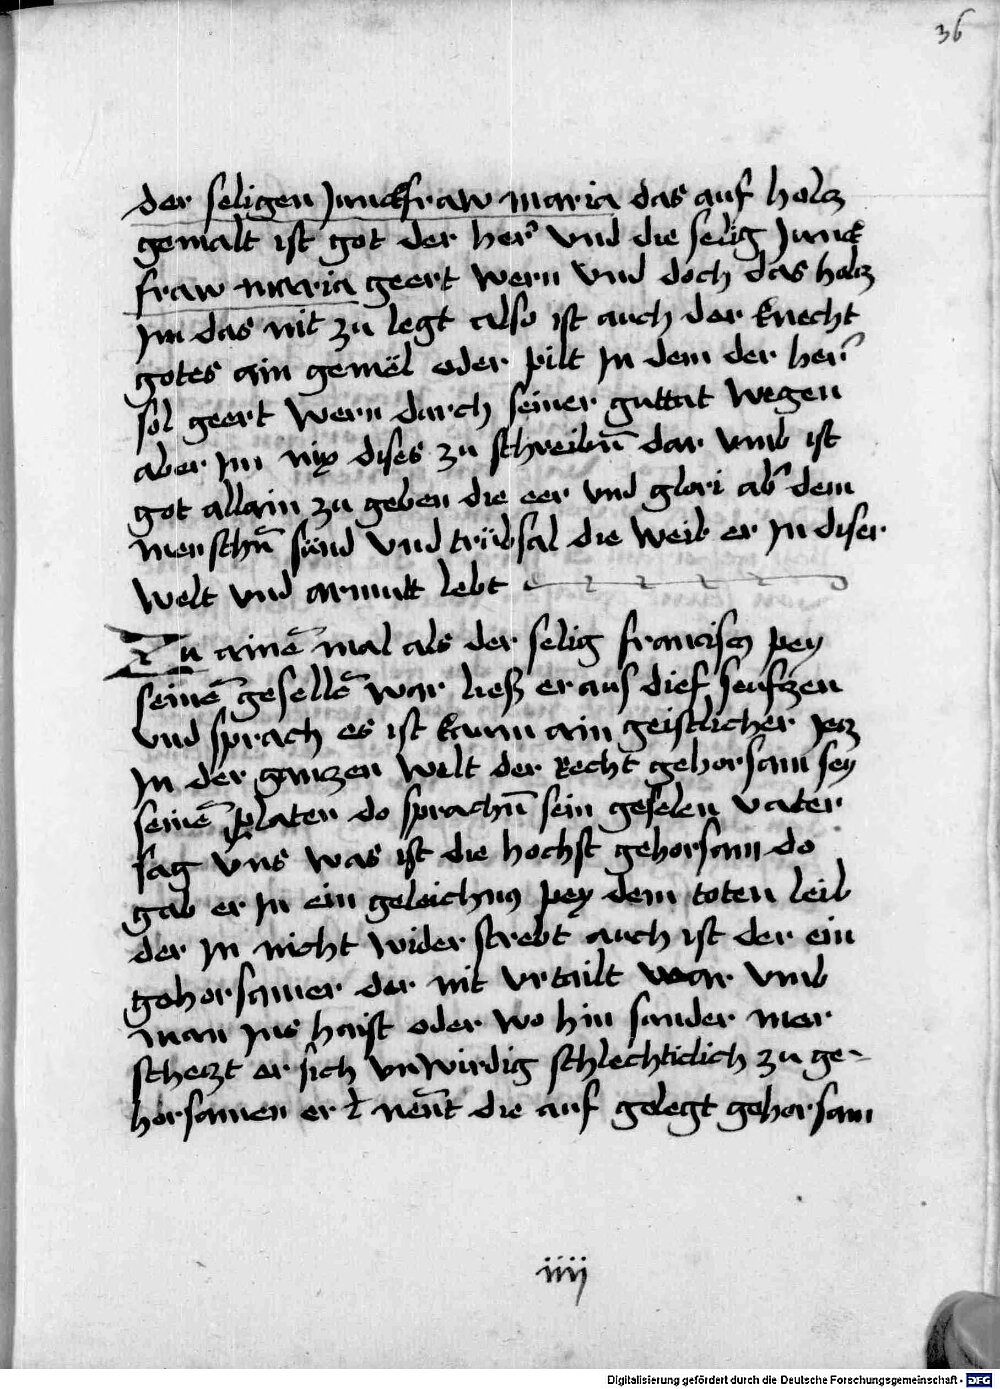 36
der seligen Junckfraw maria das auf holcz
gemalt ist got der her vnd die selig Junck
fraw maria geert wern vnd doch das holcz
Im das nit zu legt also ist auch der knecht
gotes ain gemël oder pilt In dem der her
sol geert wern darch seiner guttat wegen
aber Im nix dises zu schreibñ dar vmb ist
got allain zu geben die eer vnd glori ab dem
menschñ sünd vnd trübsal die weib er In diser
welt vnd armutt lebt
Zu ainē mal als der selig francisg pey
seinē gesellē war ließ er aus dief seufczen
vnd sprach es ist kaum ain geistlicher Jecz
In der ganczen welt der recht gehorsam sey
seinē platen do sprachñ sein geselen vater
sag vns was ist die hochst gehorsam do
gab er In ein geleichnus pey dem toten leib
der In nicht wider strebt auch ist der ein
gehorsamer der nit vrtailt war vmb
man Ins haist oder wo hin sander mer
scheczt er sich vnwirdig schlechticlich zu ge-
horsamen er nent die auf gelegt gehorsam
iiij
Digitalisierung gefördert durch die Deutsche Forschungsgemeinschaft - DFG